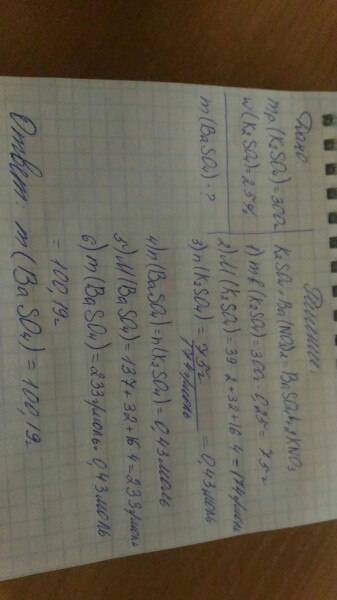 Дано:
mр(K₂SO₄)=300г
w(K₂SO₄)=25%
m(BaSO₄)-?
Решение:
K₂SO₄+Ba(NO₃)₂=BaSO₄↓+2KNO₃
1) mв(K₂SO₄)=300·0,25=75г
2) M(K₂SO₄)=39·2+32+16·4=174г/моль
3) n(K₂SO₄)=75г/174г/моль=0,43моль
4) n(BaSO₄)=n(K₂SO₄)=0,43моль
5) M(BaSO₄)=137+32+16·4=233г/моль
6) m(BaSO₄)=233г/моль·0,43моль
=100,19г
Ответ: m(BaSO₄)=100,19г